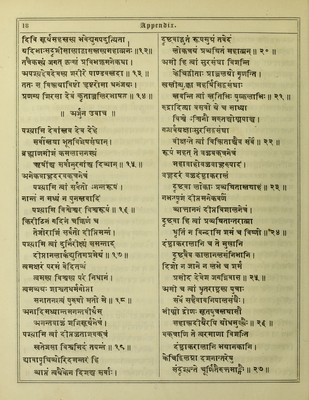 18 Appendix.
दिवि सूर्यसहस्रस्य भवेद्युगपदुत्थिता ।
यदिभाःसदृशीसास्याद्भासस्तस्यमहात्मनः ॥ १२॥
तत्रैकस्थं जगत् कृत्स्नं प्रविभक्तमनेकधा ।
अपश्यद्देवदेवस्य शरीरे पाण्डवस्तदा ॥ १३ ॥
ततः स विस्मयाविष्टो हृष्टरोमा धनंजयः ।
प्रणम्य शिरसा देवं कृताञ्जलिरभाषत ॥ १४ ॥
॥ अर्जुन उवाच ॥
पश्यामि देवांस्तव देव देहे
सर्वांस्तथा भूतविशेषसंघान् ।
ब्रह्माणमीशं कमलासनस्थं
ऋषींश्च सर्वानुरगांश्च दिव्यान् ॥ १५ ॥
अनेकबाहूदरवक्त्रनेत्रं
पश्यामि त्वां सर्वतो ऽनन्तरूपं ।
नान्तं न मध्यं न पुनस्तवादिं
पश्यामि विश्वेश्वर विश्वरूपं ॥ १६ ॥
किरीटिनं गदिनं चक्रिणं च
तेजोराशिं सर्वतो दीप्तिमन्तं ।
पश्यामि त्वां दुर्निरीक्ष्यं समन्ताद्
दीप्तानलार्कद्युतिमप्रमेयं ॥ १७ ॥
त्वमक्षरं परमं वेदितव्यं
त्वमस्य विश्वस्य परं निधानं ।
त्वमव्ययः शाश्वतधर्मगोप्ता
सनातनस्त्वं पुरुषो मतो मे ॥ १८ ॥
अनादिमध्यान्तमनन्तवीर्यम्
अनन्तबाहुं शशिसूर्यनेत्रं ।
पश्यामि त्वां दीप्तहुताशवक्त्रं
स्वतेजसा विश्वमिदं तपन्तं ॥ १९ ॥
द्यावापृथिव्योरिदमन्तरं हि
व्याप्तं त्वयैकेन दिशश्च सर्वाः ।
दृष्ट्वाद्भुतं रूपमुग्रं तवेदं
लोकत्रयं प्रव्यथितं महात्मन् ॥ २० ॥
अमी हि त्वां सुरसंघा विशन्ति
केचिद्भीताः प्राञ्जलयो गृणन्ति ।
स्वस्तीत्युक्त्वा महर्षिसिद्धसंघाः
स्तुवन्ति त्वां स्तुतिभिः पुष्कलाभिः ॥ २१ ॥
रुद्रादित्या वसवो ये च साध्या
विश्वे ऽश्विनौ मरुतश्चोष्मपाश्च ।
गन्धर्वयक्षासुरसिद्धसंघा
वीक्षन्ते त्वां विस्मिताश्चैव सर्वे ॥ २२ ॥
रूपं महत् ते बहुवक्त्रनेत्रं
महाबाहो बहुबाहूरुपादं ।
बहूदरं बहुदंष्ट्राकरालं
दृष्ट्वा लोकाः प्रव्यथितास्तथाहं ॥ २३ ॥
नभःस्पृशं दीप्तमनेकवर्णं
व्यात्ताननं दीप्तविशालनेत्रं ।
दृष्ट्वा हि त्वां प्रव्यथितान्तरात्मा
धृतिं न विन्दामि शमं च विष्णो ॥ २४ ॥
दंष्ट्राकरालानि च ते मुखानि
दृष्ट्वैव कालानलसंनिभानि ।
दिशो न जाने न लभे च शर्म
प्रसीद देवेश जगन्निवास ॥ २५ ॥
अमी च त्वां धृतराष्ट्रस्य पुत्राः
सर्वे सहैवावनिपालसंघैः ।
भीष्मो द्रोणः सूतपुत्रस्तथासौ
सहास्मदीयैरपि योधमुख्यैः ॥ २६ ॥
वक्त्राणि ते त्वरमाणा विशन्ति
दंष्ट्राकरालानि भयानकानि ।
केचिद्विलग्ना दशनान्तरेषु
संदृश्यन्ते चूर्णितैरुत्तमाङ्गैः ॥ २७ ॥